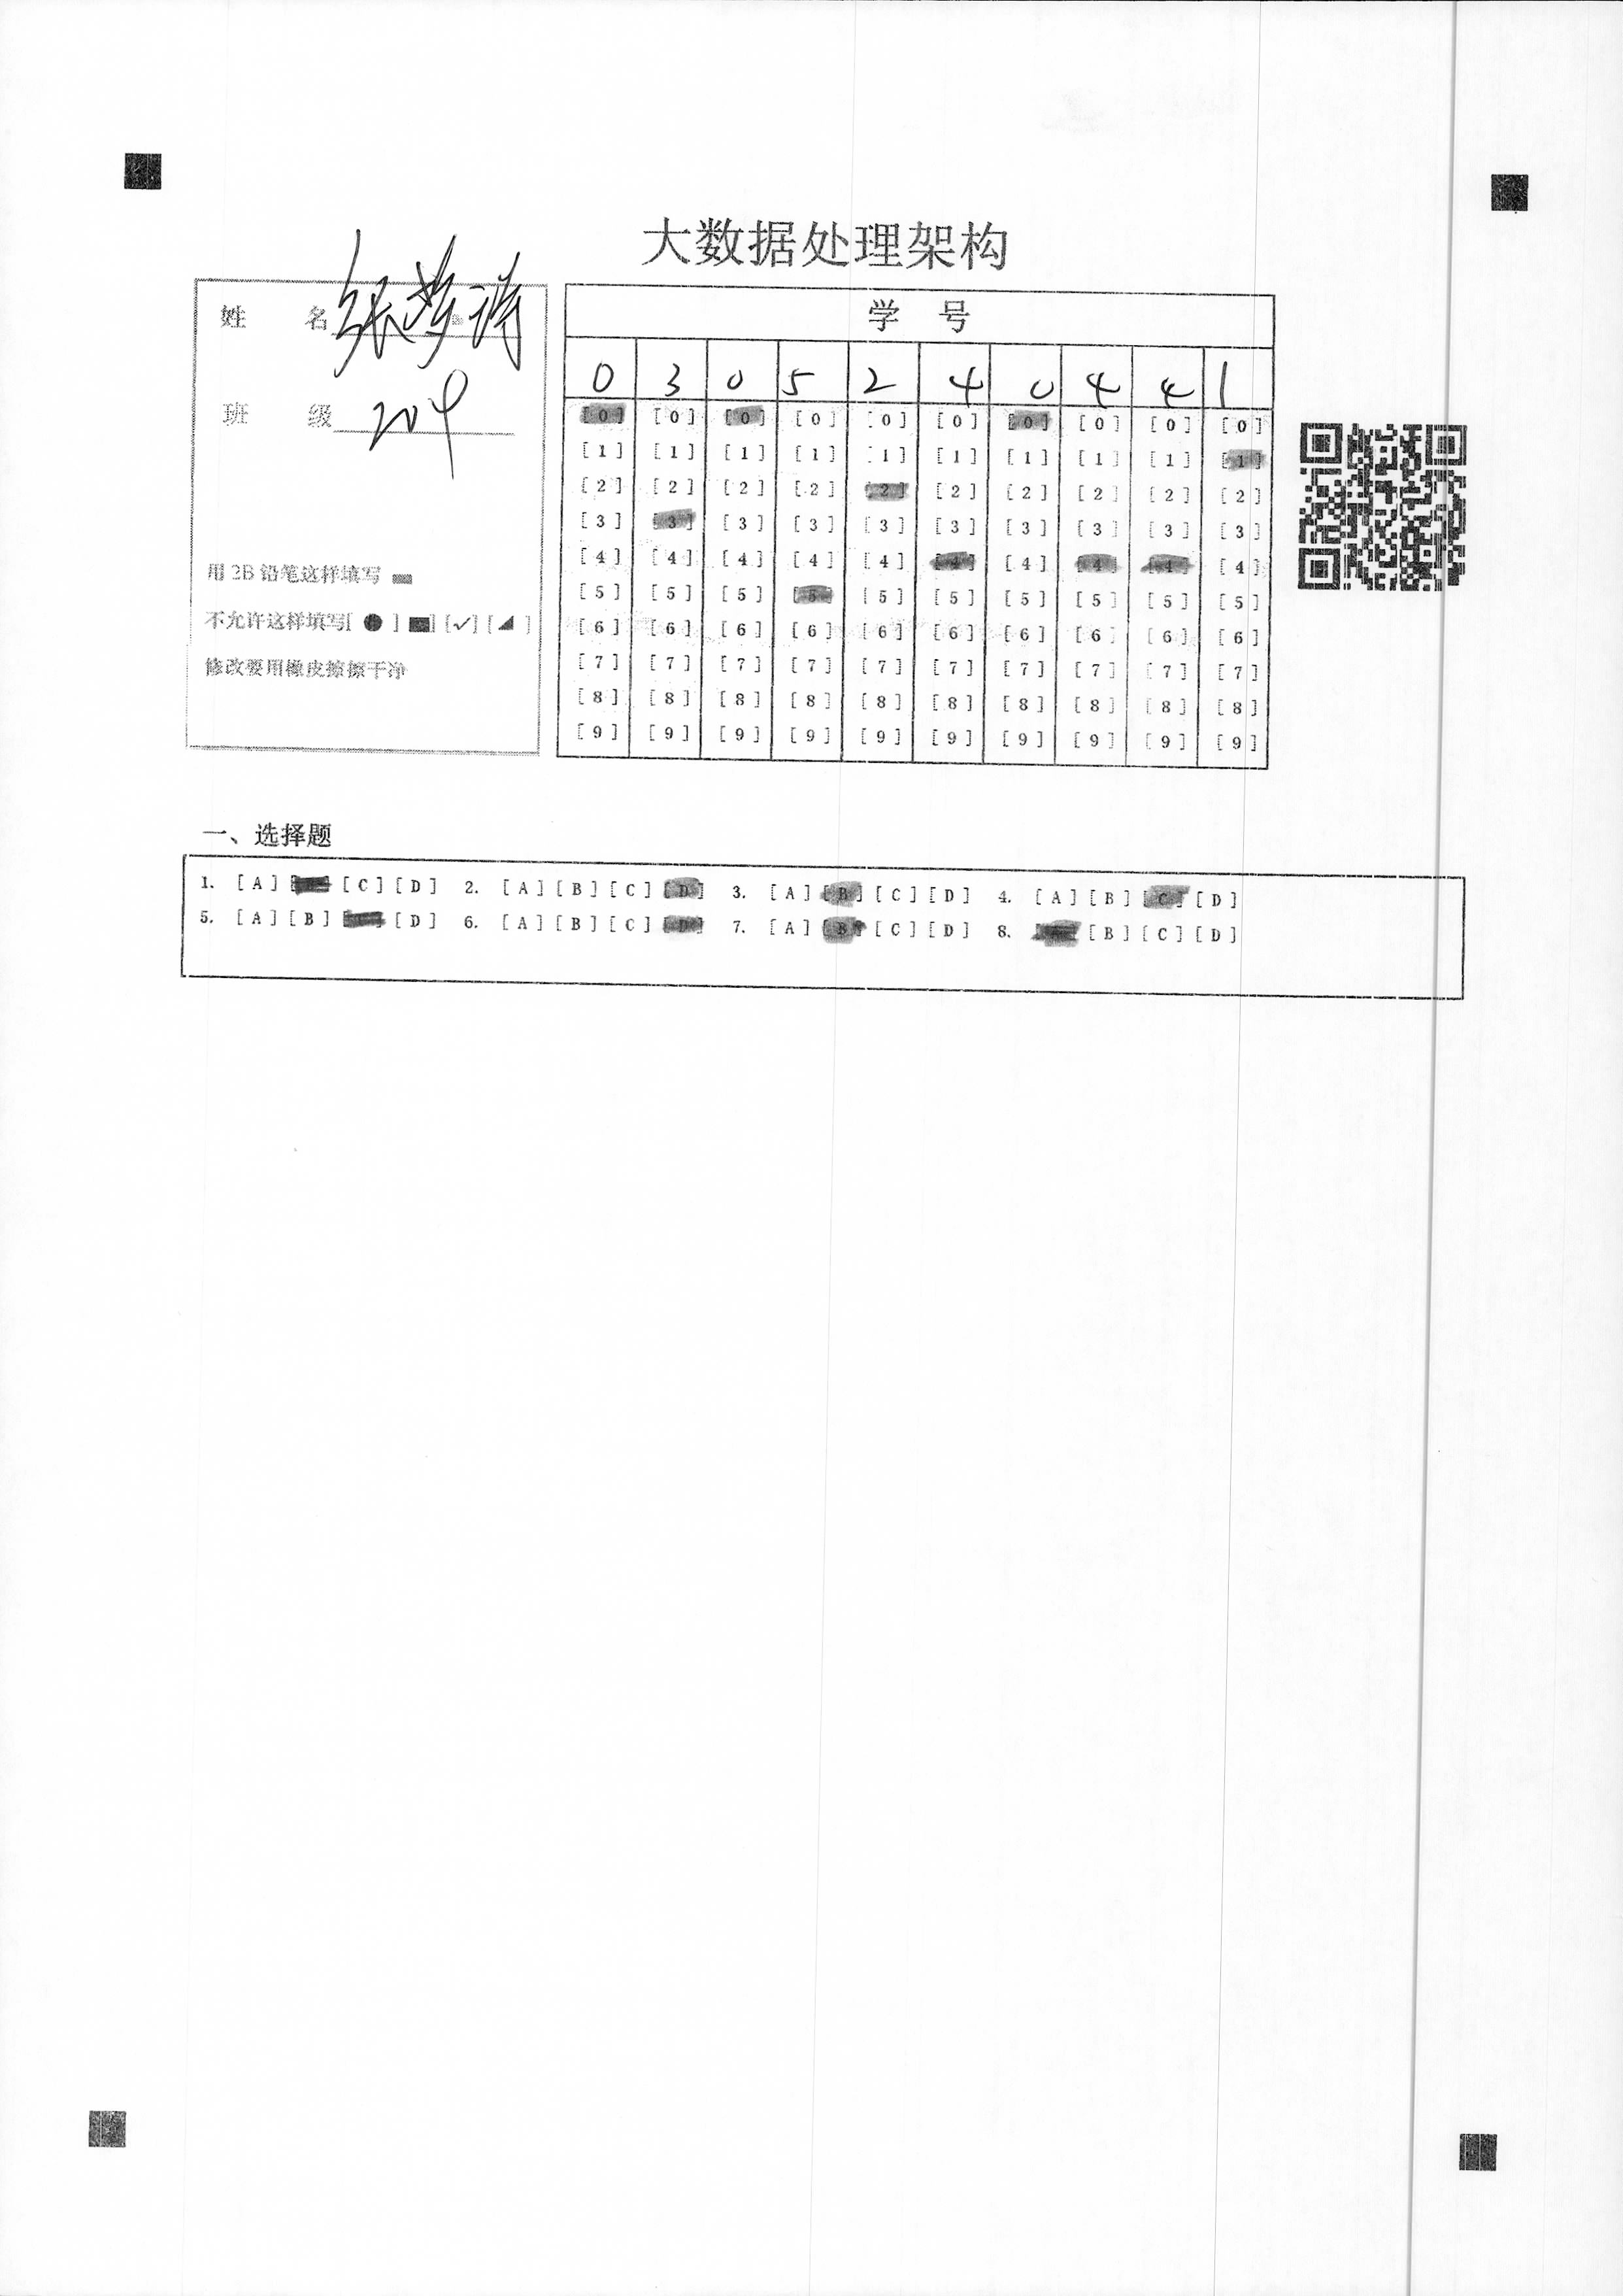 大数据处理架构
姓 名 张梦诗
班 级 204
用 2B 铅笔这样填写
不允许这样填写[ ● ] [■] [✓] [◢ ]
修改要用橡皮擦擦干净
学 号
0 3 0 5 2 4 0 4 4 1
[0] [0] [0] [0] [0] [0] [0] [0] [0] [0]
[1] [1] [1] [1] [1] [1] [1] [1] [1] [1]
[2] [2] [2] [2] [2] [2] [2] [2] [2] [2]
[3] [3] [3] [3] [3] [3] [3] [3] [3] [3]
[4] [4] [4] [4] [4] [4] [4] [4] [4] [4]
[5] [5] [5] [5] [5] [5] [5] [5] [5] [5]
[6] [6] [6] [6] [6] [6] [6] [6] [6] [6]
[7] [7] [7] [7] [7] [7] [7] [7] [7] [7]
[8] [8] [8] [8] [8] [8] [8] [8] [8] [8]
[9] [9] [9] [9] [9] [9] [9] [9] [9] [9]
一、选择题
1. [A] [B] [C] [D] 2. [A] [B] [C] [D] 3. [A] [B] [C] [D] 4. [A] [B] [C] [D]
5. [A] [B] [C] [D] 6. [A] [B] [C] [D] 7. [A] [B] [C] [D] 8. [A] [B] [C] [D]